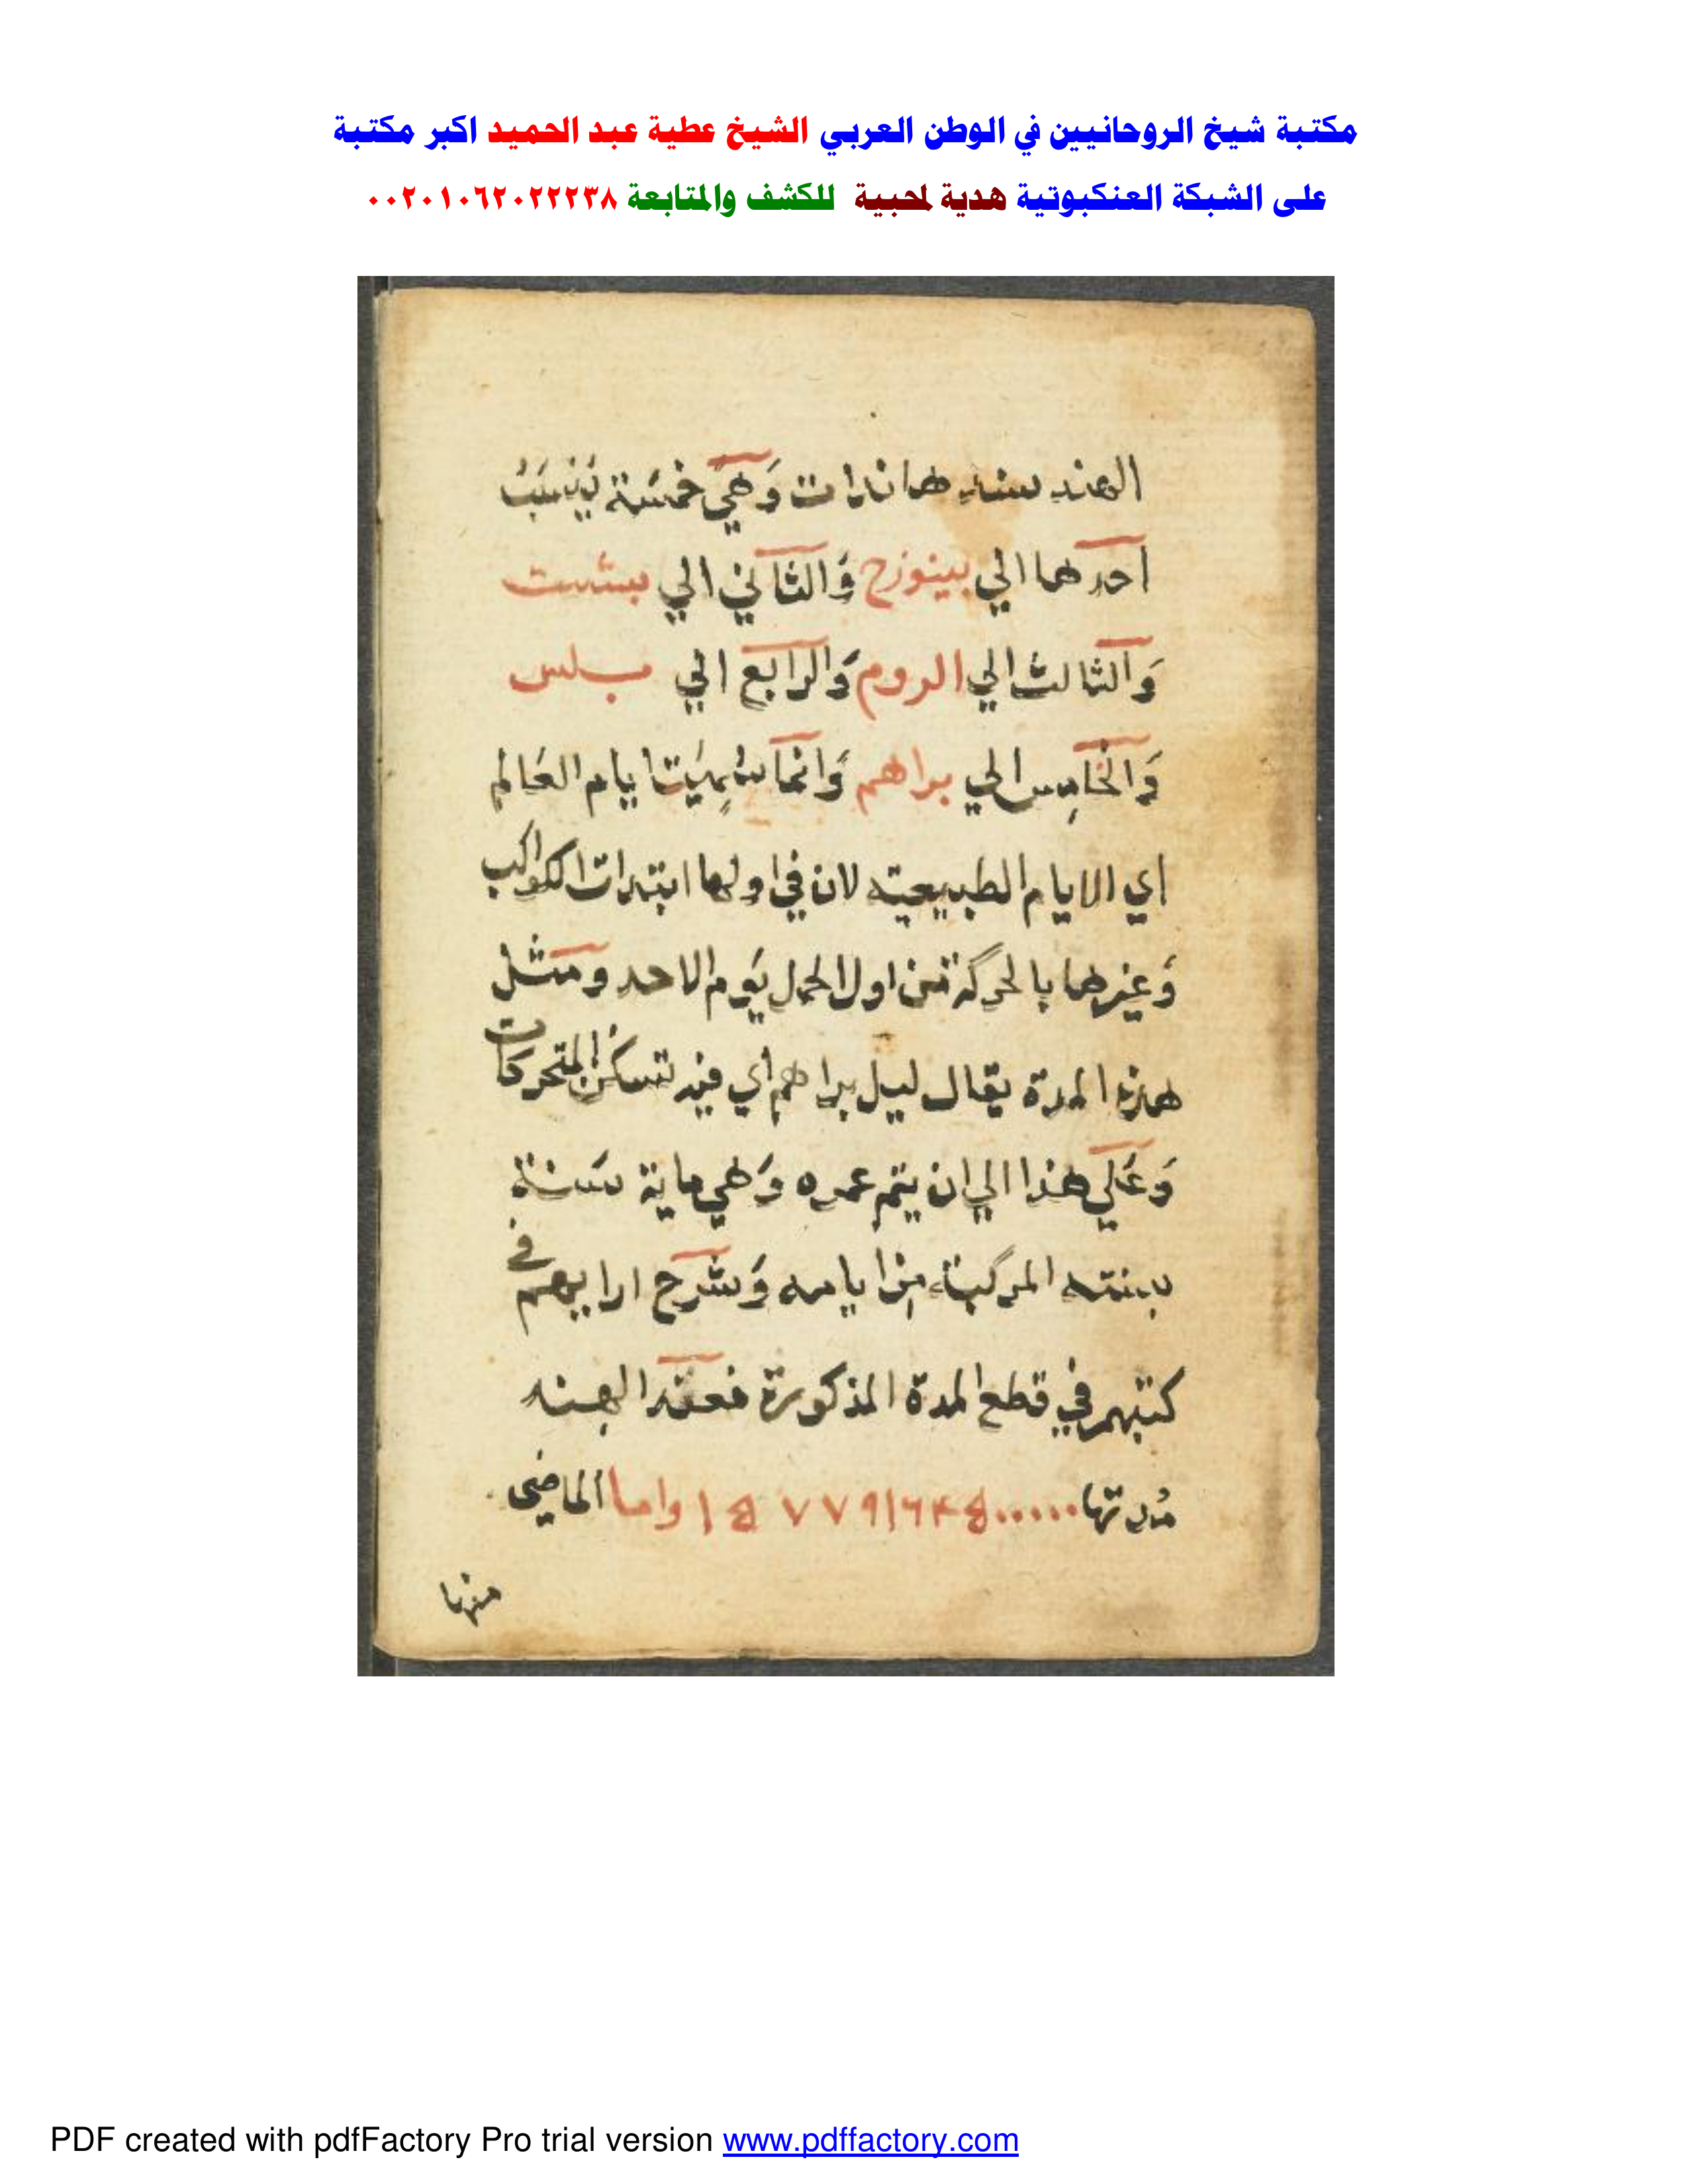 مكتبة شيخ الروحانيين في الوطن العربي الشيخ عطية عبد الحميد اكبر مكتبة
على الشبكة العنكبوتية هدية لمحبية للكشف والمتابعة ٠٠٢٠١٠٦٢٠٢٢٢٣٨
الهند سند هاندات وَهيَ خمسَة يَنسَبُ
احدهما الي بينوزح وَالثاني الي بششت
وَالثالث الي الروم وَالرابع الي بلس
وَالخامِس الي براهم وَانما سُمِيَت ايام العَالم
اي الايام الطبيعيته لان في اولها ابتدات الكواكب
وَغيرها بالحركة من اول الحمل يَوم الاحد ومثل
هذه المدة يقال ليل براهم اي فيه تسكن المتحركات
وَعَلي هذا الي ان يتم عمره وَهي ماية سَنة
بسنته المركبة من ايامه وَشرح ارايهم في
كتبهم في قطع المدة المذكورة فعند الهند
مُدتها واما الماضي
منها
PDF created with pdfFactory Pro trial version www.pdffactory.com